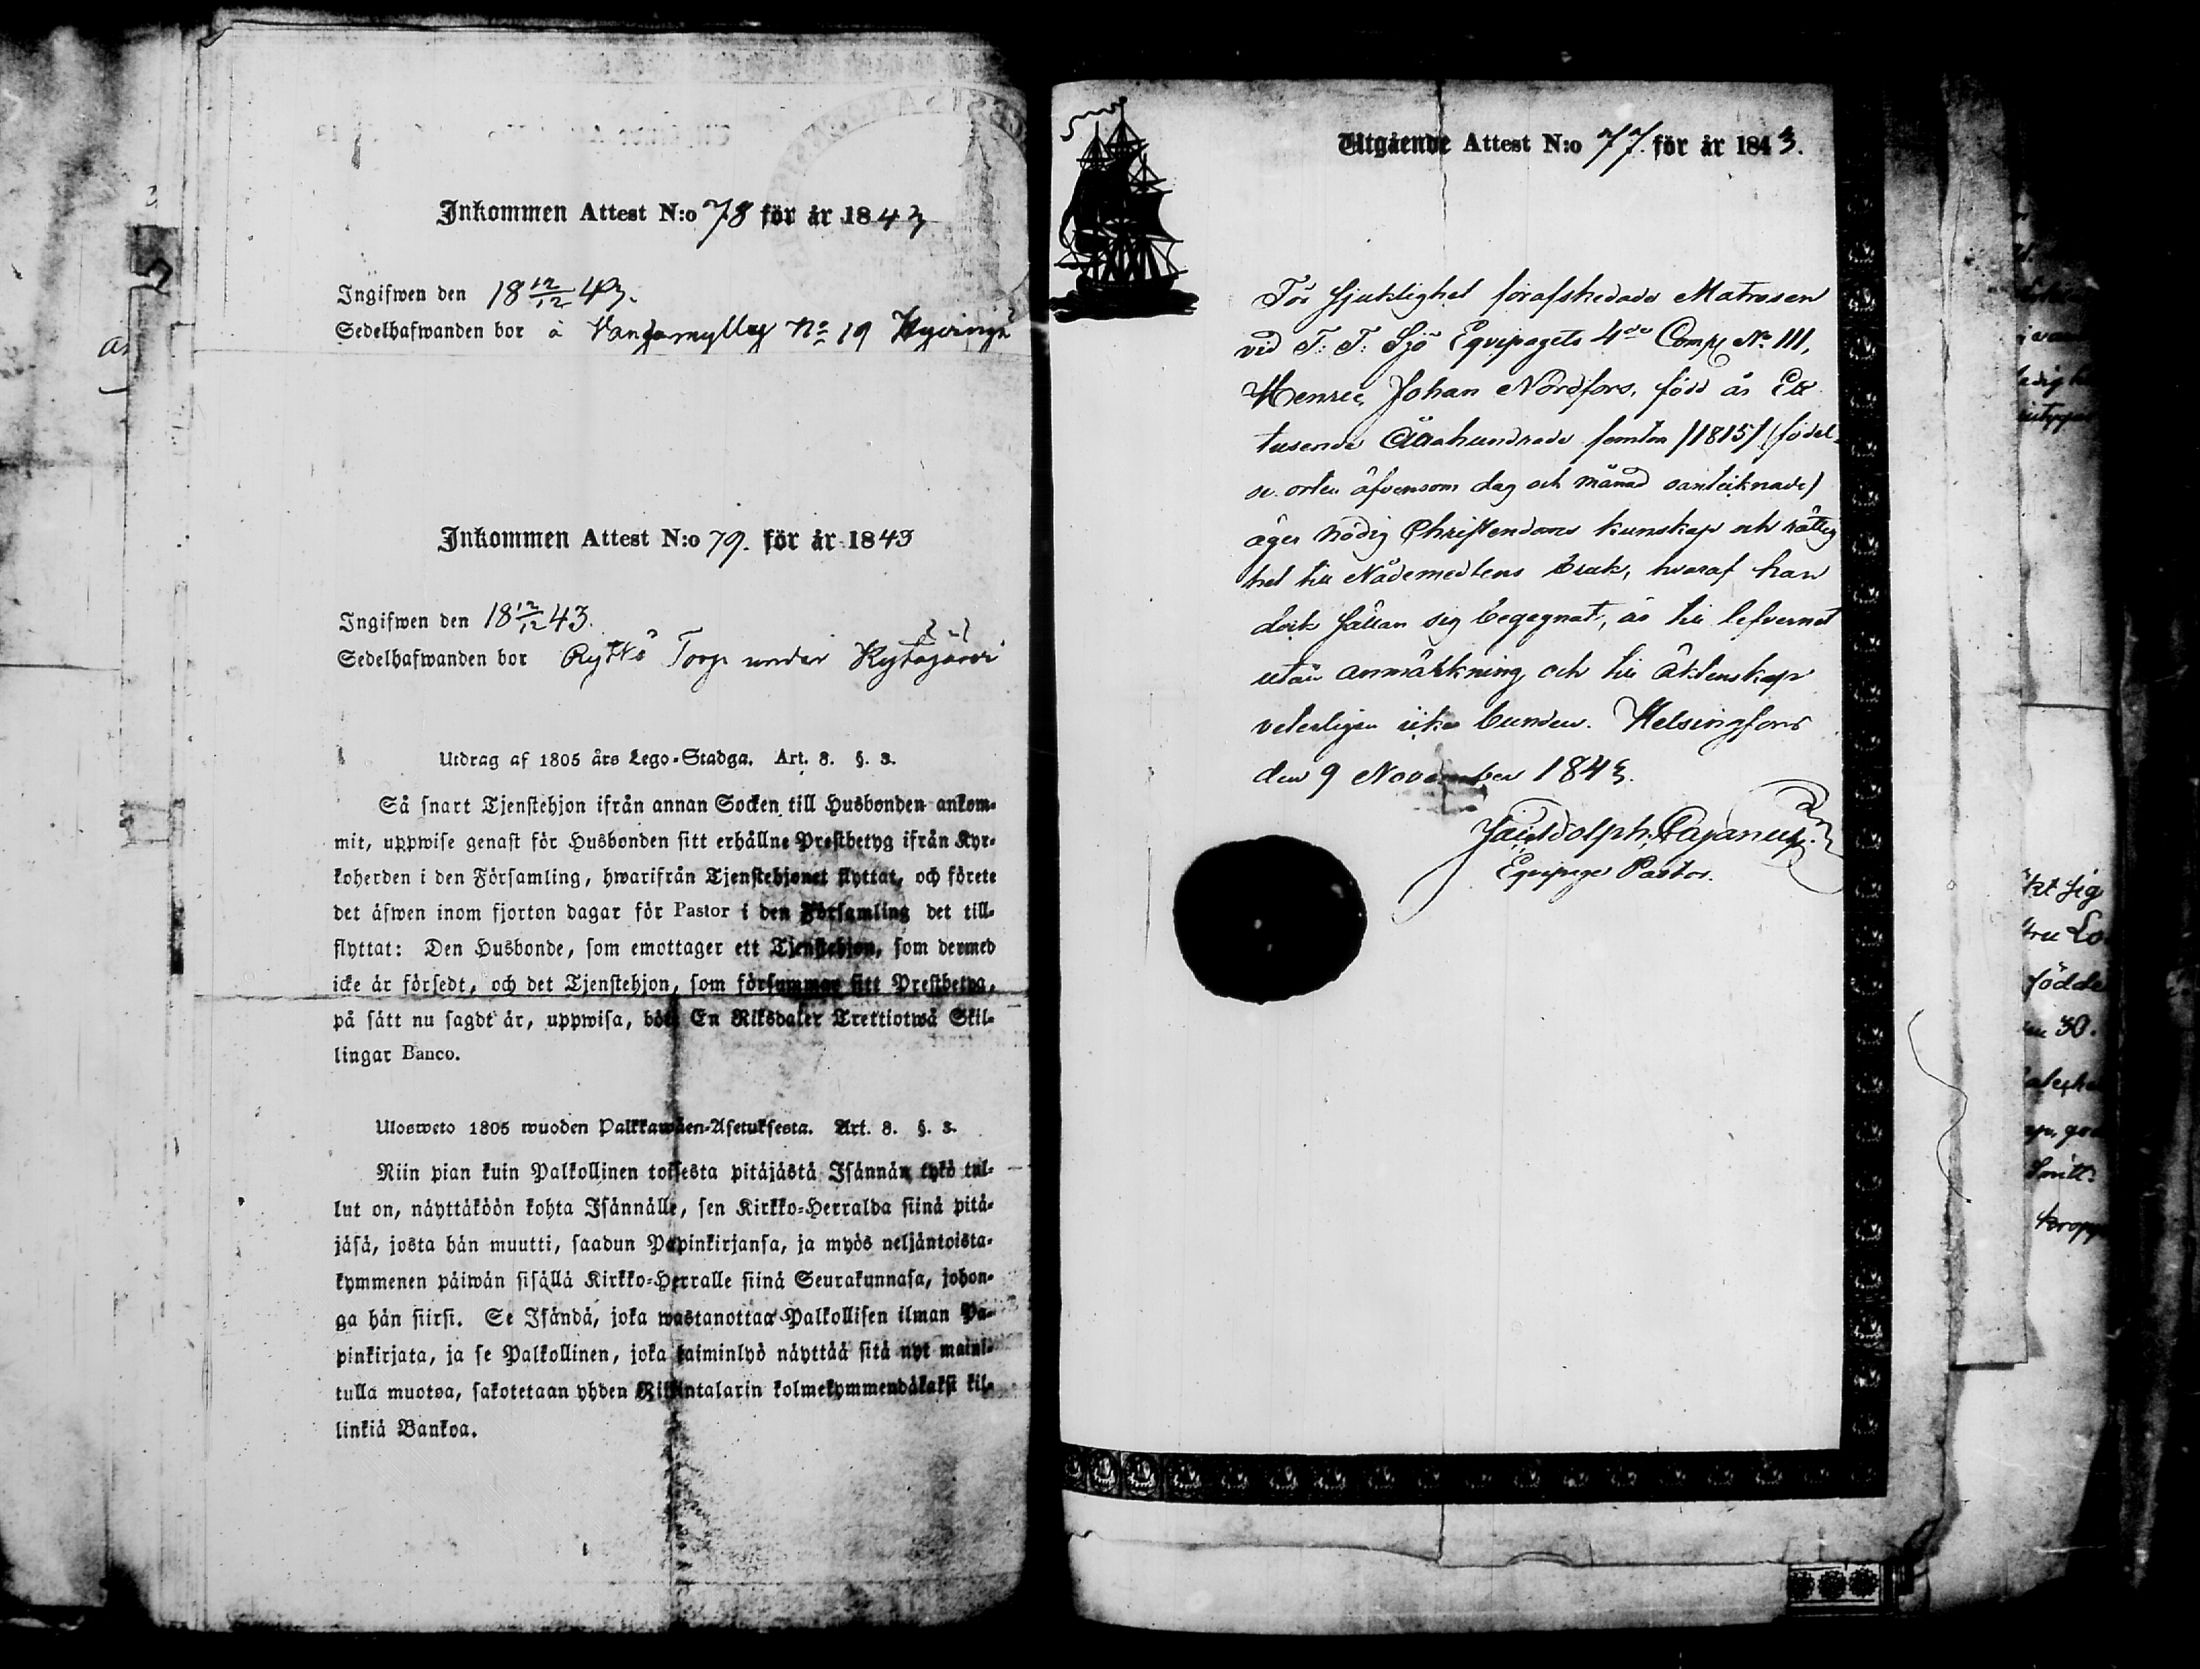 Inkommen Attest N:o 78 för år 1843
Ingifwen den 18 12/12 43.
Sedelhafwanden bor å Vanjamylly No 19 Hyvingä
Inkommen Attest N:o 79. för år 1843
Ingifwen den 18 12/12 43.
Sedelhafwanden bor Rytkö Torp under Kytäjärvi
Utdrag af 1805 års Lego-Stadga. Art. 8. §. 3.
Så snart Tjenstehjon ifrån annan Socken till Husbonden ankom-
mit, uppwise genast för Husbonden sitt erhållne Prestbetyg ifrån Kyr-
koherden i den Församling, hwarifrån Tjenstehjonet flyttat, och förete
det äfwen inom fjorton dagar för Pastor i den Församling det till-
flyttat: Den Husbonde, som emottager ett Tjenstehjon, som dermed
icke är försedt, och det Tjenstehjon, som försummar sitt Prestbetyg,
på sätt nu sagdt är, uppwisa, böte En Riksdaler Trettiotwå Skil-
lingar Banco.
Ulosweto 1805 wuoden Palkkawäen-Asetuksesta. Art. 8. §. 3.
Niin pian kuin Palkollinen toisesta pitäjästä Isännän tykö tul-
lut on, näyttäköön kohta Isännälle, sen Kirkko-Herralda siinä pitä-
jäsä, josta hän muutti, saadun Papinkirjansa, ja myös neljäntoista-
kymmenen päiwän sisällä Kirkko-Herralle siinä Seurakunnasa, johon-
ga hän siirsi. Se Isändä, joka wastanottaa Palkollisen ilman Pa-
pinkirjata, ja se Palkollinen, joka laiminlyö näyttää sitä nyt maini-
tulla muotoa, sakotetaan yhden Riksintalarin kolmekymmendäkaksi kil-
linkiä Bankoa.
Utgående Attest N:o 77. för år 1843.
För sjuklighet förafskedade Matrosen
vid F: F: Sjö Eqvipagets 4de Comp: No 111,
Henric Johan Nordfors, född år Ett
tusende Åttahundrade femton /1815/ (födel-
se orten äfvensom dag och månad oanteiknade)
äger nödig Christendoms kunskap och rättig
het till Nådemedlens bruk, hvaraf han
dock sällan sig begagnat, är till lefvernet
utan anmärkning och till Äktenskap
veterligen icke bunden. Helsingfors
den 9 November 1843.
Adolph Cajanus.
Eqvipage Pastor.
födde